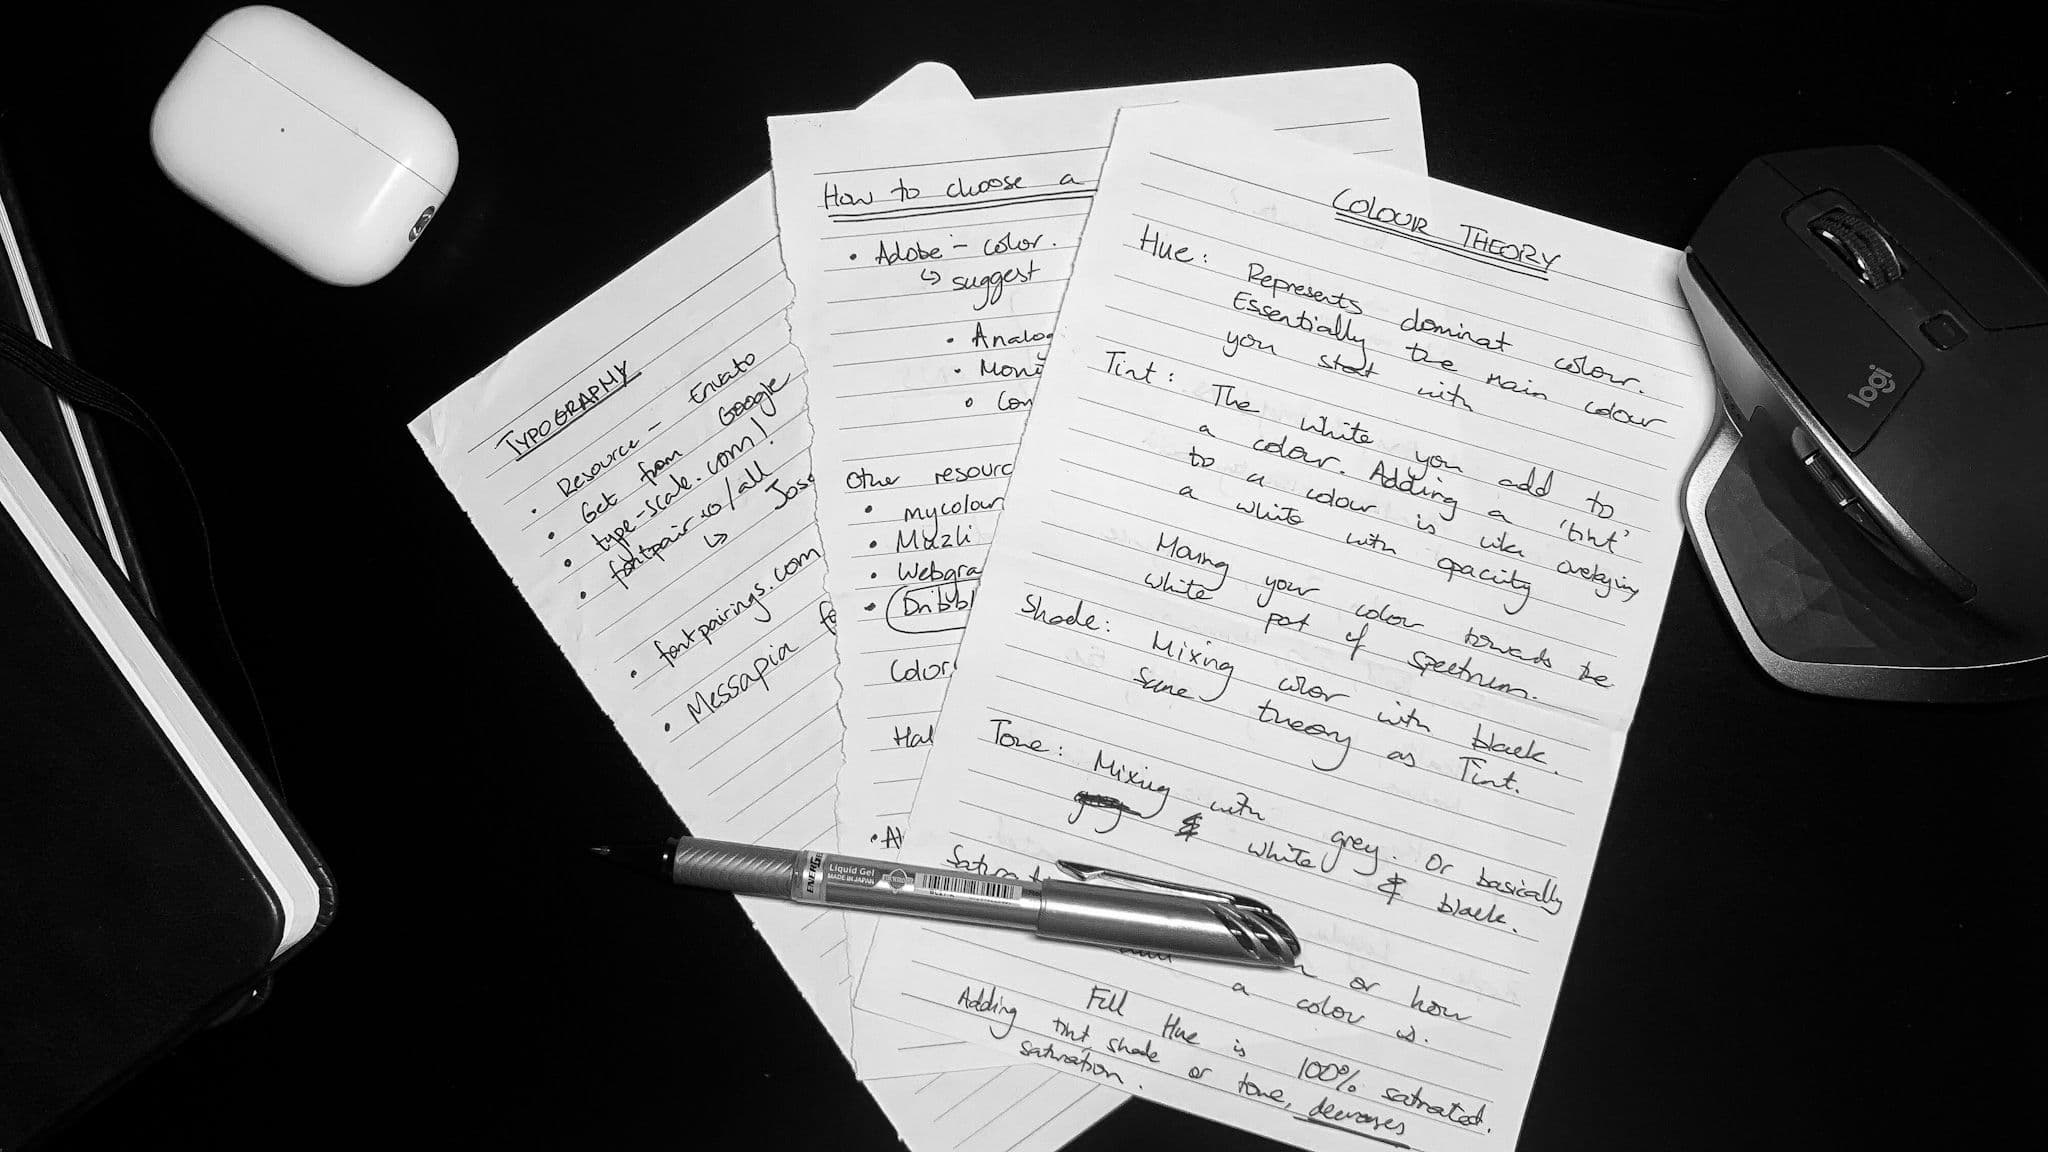 TYPOGRAPHY
• Resource - Envato
• Get from Google
• type-scale.com!
• fontpair.io/all
↳ Jos
• fontpairings.com
• Messapia fo
How to choose a
• Adobe - color.
↳ suggest
• Analog
• Mon
• Con
Other resourc
• mycolour
• Muzli
• Webgra
• Dribbl
Color
Hal
COLOUR THEORY
Hue: Represents dominat colour.
Essentially the main colour
you start with
Tint: The white you add to
a colour. Adding a 'tint'
to a colour is like overlaying
a white with opacity
Moving your color towards the
white part of spectrum.
Shade: Mixing color with black.
Same theory as Tint.
Tone: Mixing with grey. Or basically
white & black.
Satura
or how
a color is.
Full Hue is 100% satrated.
Adding tint, shade or tone, decreases
saturation.
ENERGEL
Liquid Gel
MADE IN JAPAN
logi